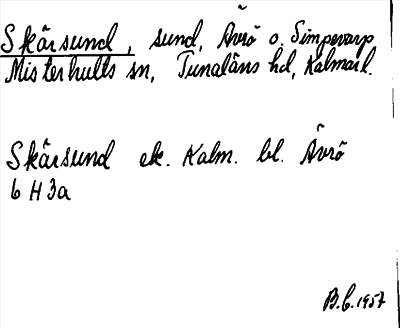 Skärsund, sund, Ävrö o. Simpevarp
Misterhults sn, Tunaläns hd, Kalmar l.
Skärsund ek. Kalm. bl. Ävrö
6 H 3a
B.C. 1957